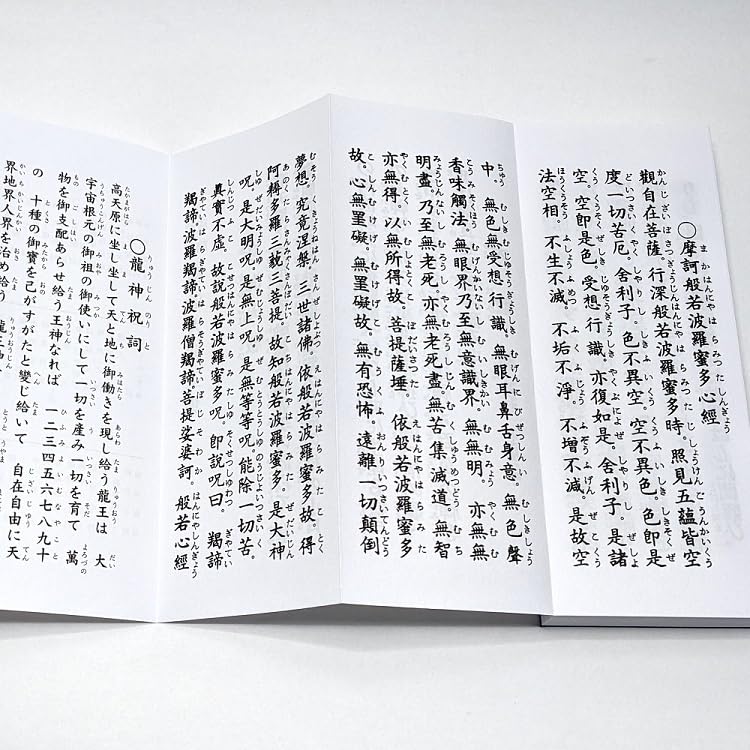 〇摩訶般若波羅蜜多心經
觀自在菩薩。行深般若波羅蜜多時。照見五蘊皆空
度一切苦厄。舍利子。色不異空。空不異色。色即是
空。空即是色。受想行識。亦復如是。舍利子。是諸
法空相。不生不滅。不垢不淨。不增不減。是故空
中。無色無受想行識。無眼耳鼻舌身意。無色聲
香味觸法。無眼界乃至無意識界。無無明。亦無無
明盡。乃至無老死。亦無老死盡。無苦集滅道。無智
亦無得。以無所得故。菩提薩埵。依般若波羅蜜多
故。心無罣礙。無罣礙故。無有恐怖。遠離一切顛倒
夢想。究竟涅槃。三世諸佛。依般若波羅蜜多故。得
阿耨多羅三藐三菩提。故知般若波羅蜜多。是大神
呪。是大明呪。是無上呪。是無等等呪。能除一切苦。
真實不虛。故說般若波羅蜜多呪。即說呪曰。 羯諦
羯諦波羅羯諦波羅僧羯諦。菩提娑婆訶。 般若心經
〇龍神祝詞
高天原に坐し坐して天と地に御働きを現し給う龍王は 大
宇宙根元の御祖の御使いにして一切を産み一切を育て 萬
物を御支配あらせ給う王神なれば 一二三四五六七八九十
の 十種の御寶を己がすがたと變じ給いて 自在自由に天
界地界人界を治め給う